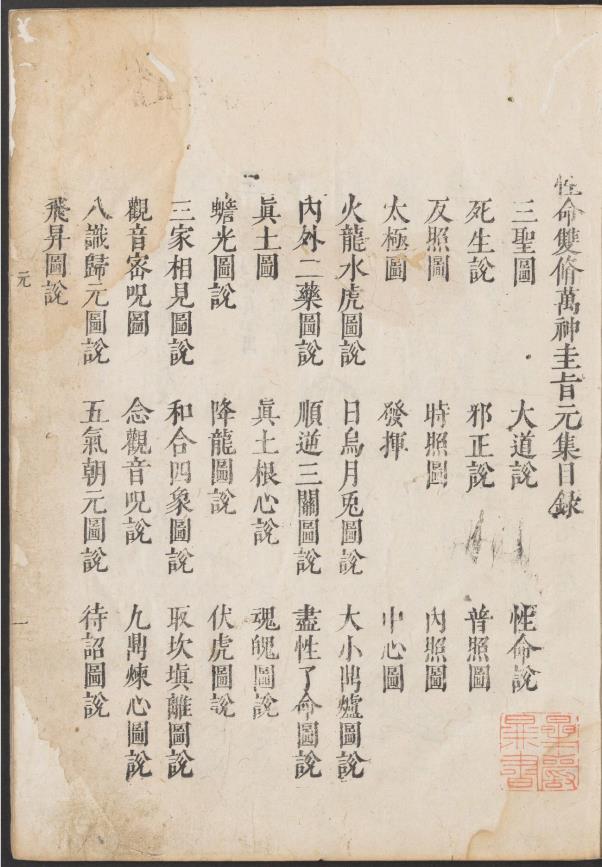 性命雙脩萬神圭旨元集目錄
三聖圖 大道說 性命說
死生說 邪正說 普照圖
反照圖 時照圖 內照圖
太極圖 發揮 中心圖
火龍水虎圖說 日烏月兎圖說 大小鼎爐圖說
內外二藥圖說 順逆三關圖說 盡性了命圖說
眞土圖 眞土根心說 魂魄圖說
蟾光圖說 降龍圖說 伏虎圖說
三家相見圖說 和合四象圖說 取坎塡離圖說
觀音密呪圖 念觀音呪說 九鼎煉心圖說
八識歸元圖說 五氣朝元圖說 待詔圖說
飛昇圖說
元
一